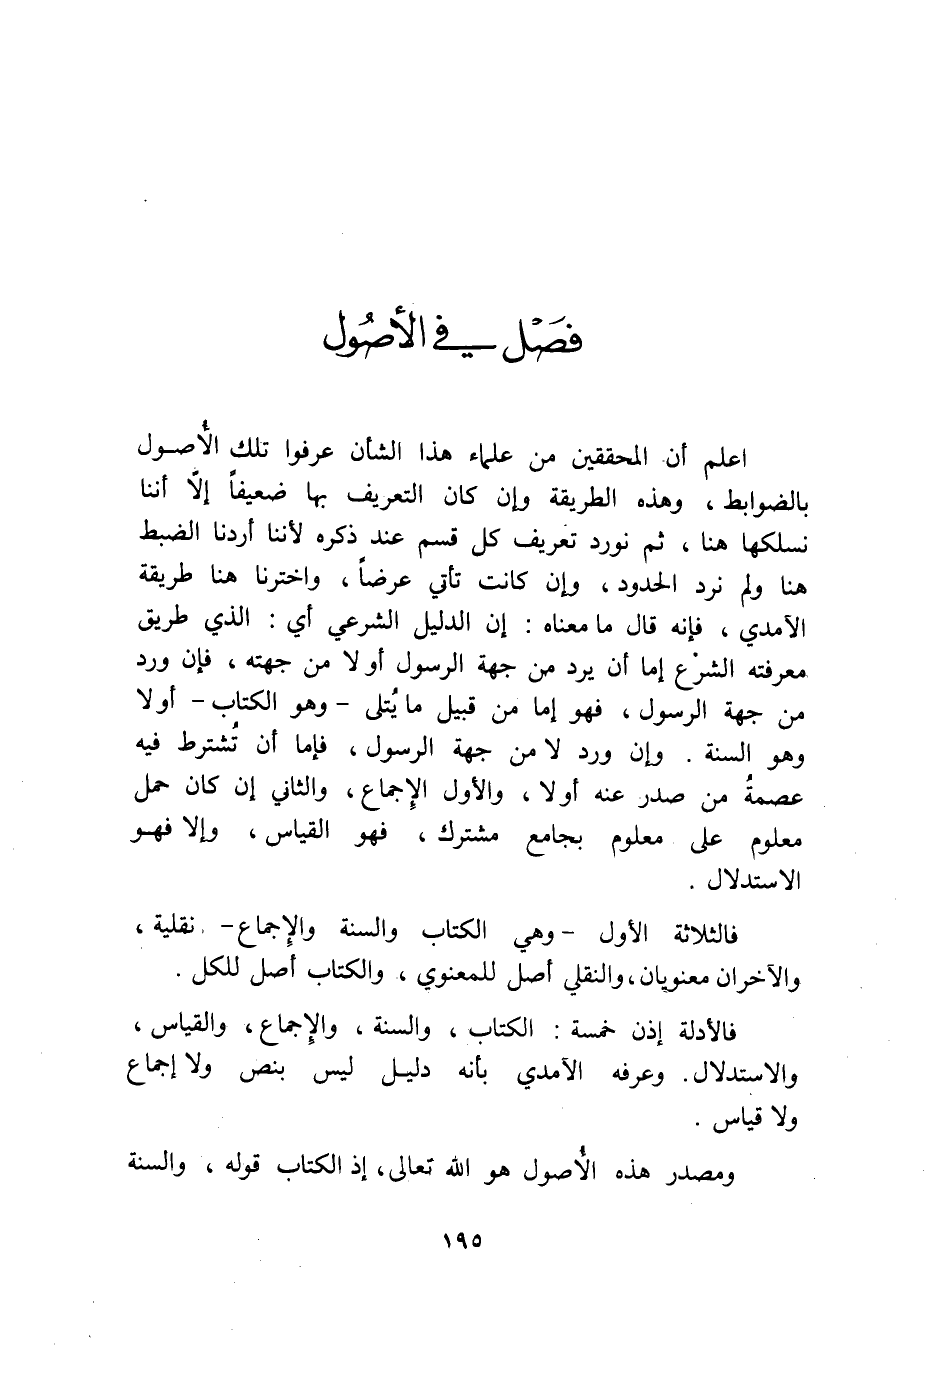 فصَل في الأصُول
اعلم أن المحققين من علماء هذا الشأن عرفوا تلك الأُصول
بالضوابط ، وهذه الطريقة وإن كان التعريف بها ضعيفاً إلّا أننا
نسلكها هنا ، ثم نورد تعريف كل قسم عند ذكره لأننا أردنا الضبط
هنا ولم نرد الحدود ، وإن كانت تأتي عرضاً ، واخترنا هنا طريقة
الآمدي ، فإنه قال ما معناه : إن الدليل الشرعي أي : الذي طريق
معرفته الشرْع إما أن يرد من جهة الرسول أو لا من جهته ، فإن ورد
من جهة الرسول ، فهو إما من قبيل ما يُتلى - وهو الكتاب - أو لا
وهو السنة . وإن ورد لا من جهة الرسول ، فإما أن تُشترط فيه
عصمةُ من صدر عنه أو لا ، والأول الإِجماع ، والثاني إن كان حمل
معلوم على معلوم بجامع مشترك ، فهو القياس ، وإلا فهو
الاستدلال .
فالثلاثة الأول - وهي الكتاب والسنة والإِجماع - نقلية ،
والآخران معنويان ، والنقلي أصل للمعنوي ، والكتاب أصل للكل .
فالأدلة إذن خمسة : الكتاب ، والسنة ، والإِجماع ، والقياس ،
والاستدلال . وعرفه الآمدي بأنه دليل ليس بنص ولا إجماع
ولا قياس .
ومصدر هذه الأُصول هو الله تعالى ، إذ الكتاب قوله ، والسنة
١٩٥